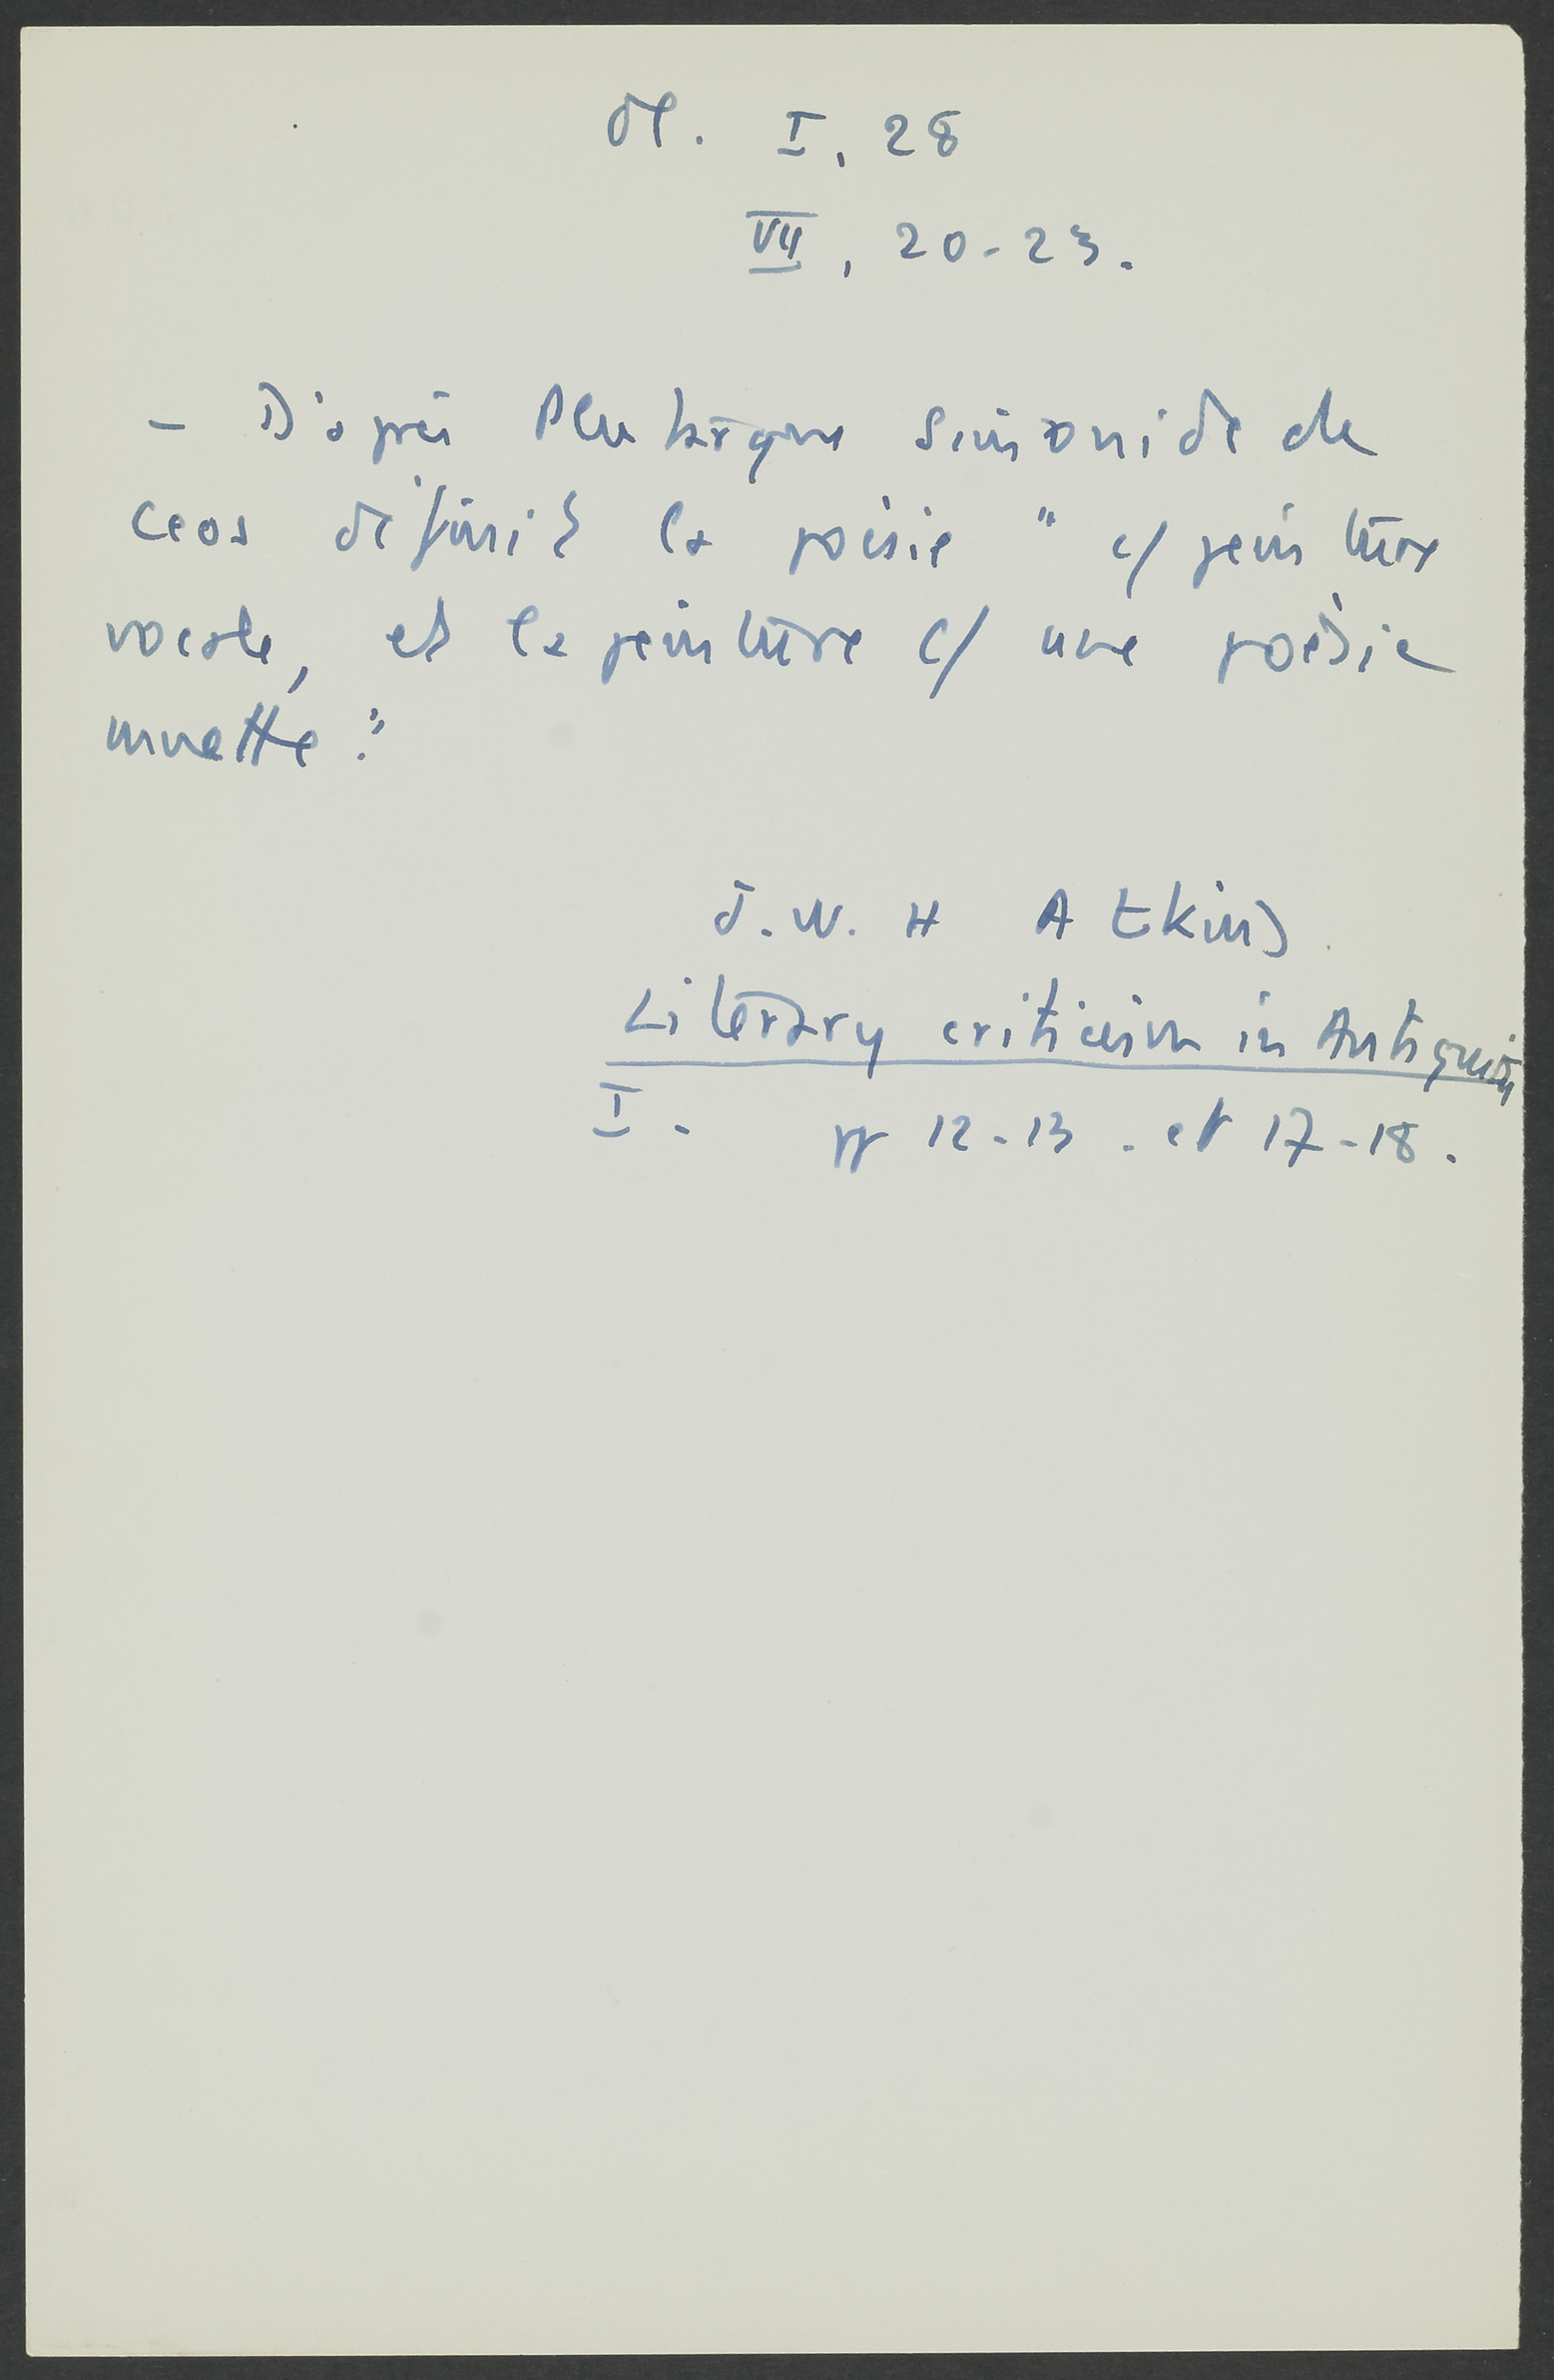 Ol. I, 28
VII, 20-23.
- D'après Plutarque Simonide de
Ceos définit la poésie "c/ peinture
vocale, et la peinture c/ une poésie
muette."
J.W.H Atkins
Literary criticism in Antiquity
I. pp 12-13. et 17-18.